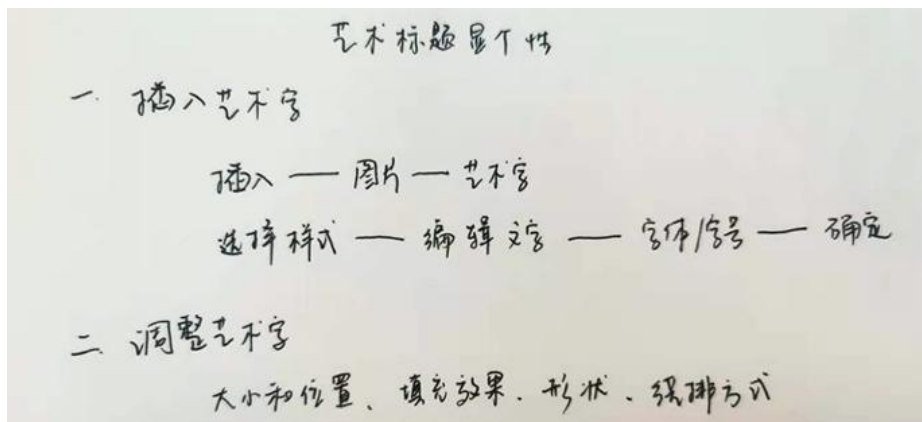 艺术标题显个性
一. 插入艺术字
插入 — 图片 — 艺术字
选择样式 — 编辑文字 — 字体/字号 — 确定
二. 调整艺术字
大小和位置、填充效果、形状、绕排方式